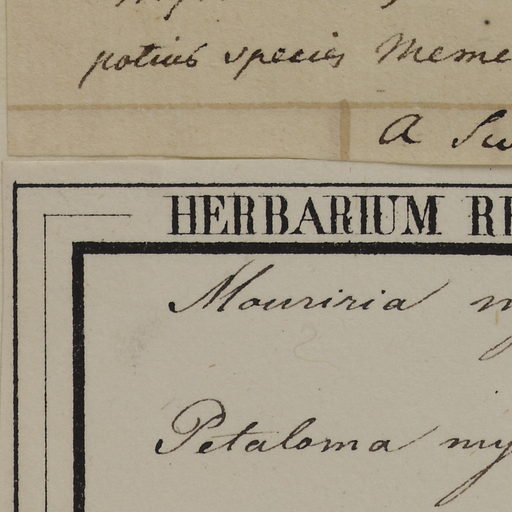 potius species Meme
A Sw
HERBARIUM RE
Mouriria my
Petaloma my